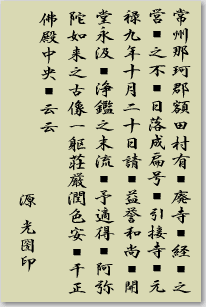 常州那珂郡額田村有■廃寺■経■之
営■之不■日落成扁号■引接寺■元
禄九年十月二十日請■益誉和尚■開
堂永汲■浄鑑之末流■予適得■阿弥
陀如来之古像一躯荘厳潤色安■于正
佛殿中央■云云
源光圀印